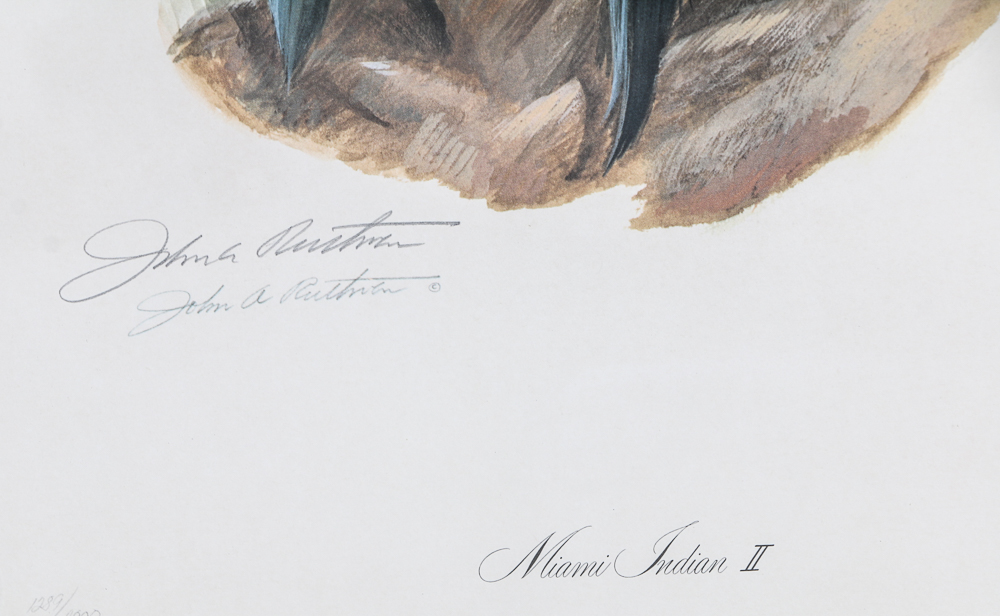 John A Ruthven
John A Ruthven ©
Miami Indian II